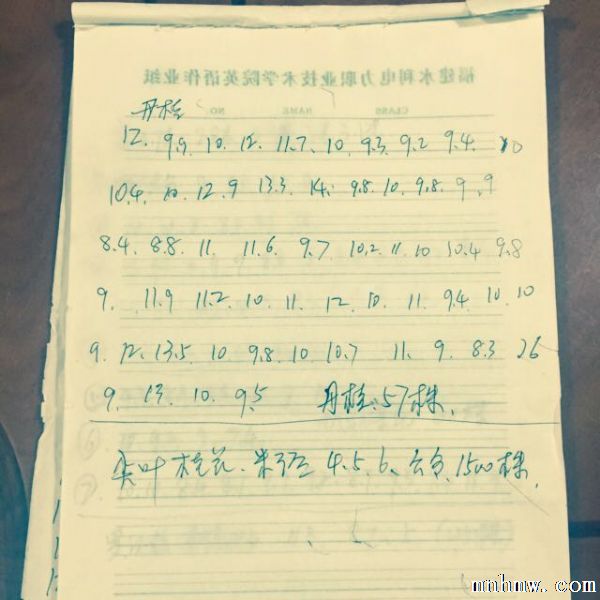 福建水利电力职业技术学院英语作业纸
CLASS NAME NO
丹桂
12. 9.9. 10. 12. 11.7. 10. 9.3. 9.2 9.4. 10
10.4. 10. 12.9 13.3. 14. 9.8. 10. 9.8. 9.9
8.4. 8.8. 11. 11.6. 9.7 10.2. 11. 10 10.4 9.8
9. 11.9 11.2. 10. 11. 12. 10. 11. 9.4 10. 10
9. 12. 13.5. 10 9.8. 10 10.7 11. 9. 8.3 26
9. 13. 10. 9.5 丹桂.57株.
尖叶桂花.米径 4.5.6.公分.1500株.
mnhmw.com